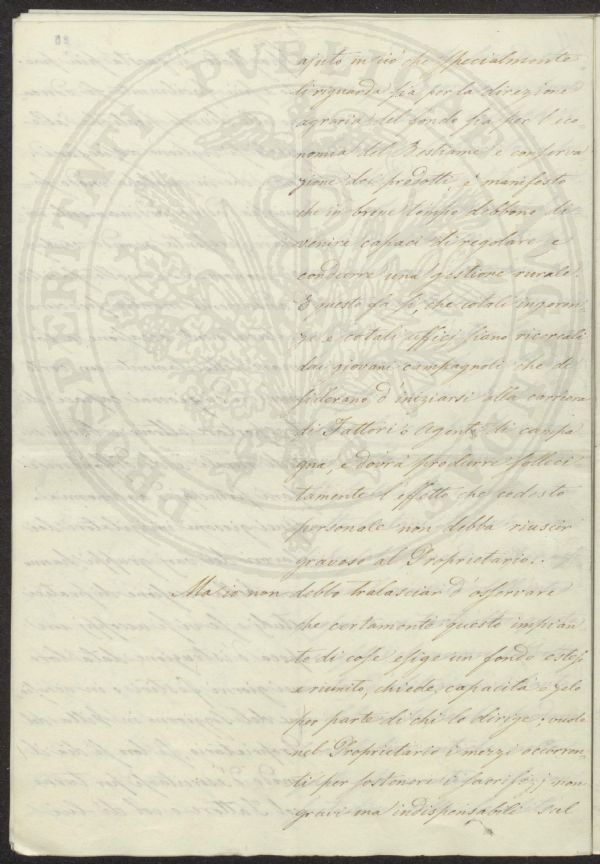 ajuto in ciò che specialmente
li riguarda sia per la direzione
agraria del fondo sia per l'eco-
nomia del Bestiame e conserva
zione dei prodotti, è manifesto
che in breve tempo debbono di
venire capaci di regolare, e
condurre una gestione rurale.
E questo fa sì, che cotali ingeren-
ze e cotali uffici siano ricercati
dai giovani campagnoli che de
siderano d'iniziarsi alla carriera
di Fattori o Agenti di campa
gna, e dovrà produrre solleci
tamente l'effetto che codesto
personale non debba riuscir
gravoso al Proprietario.
Ma io non debbo tralasciar d'osservare
che certamente questo impian-
to di cose esige un fondo esteso
e riunito, chiede capacità e zelo
per parte di chi lo dirige; vuole
nel Proprietario i mezzi occorren-
ti per sostenere i sacrifizj non
gravi ma indispensabili sul